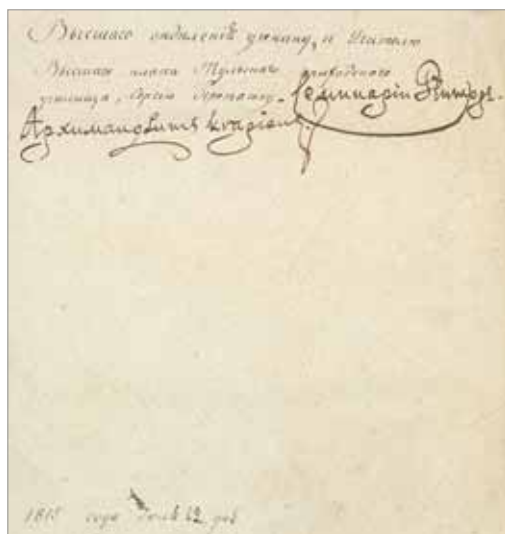 Высшаго отделенія ученику, и Учителю
Высшаго класса Тульскаго приходскаго
училища, Сергею Семинаріи Ректоръ.
Архимандритъ
года Іюля 12 дня